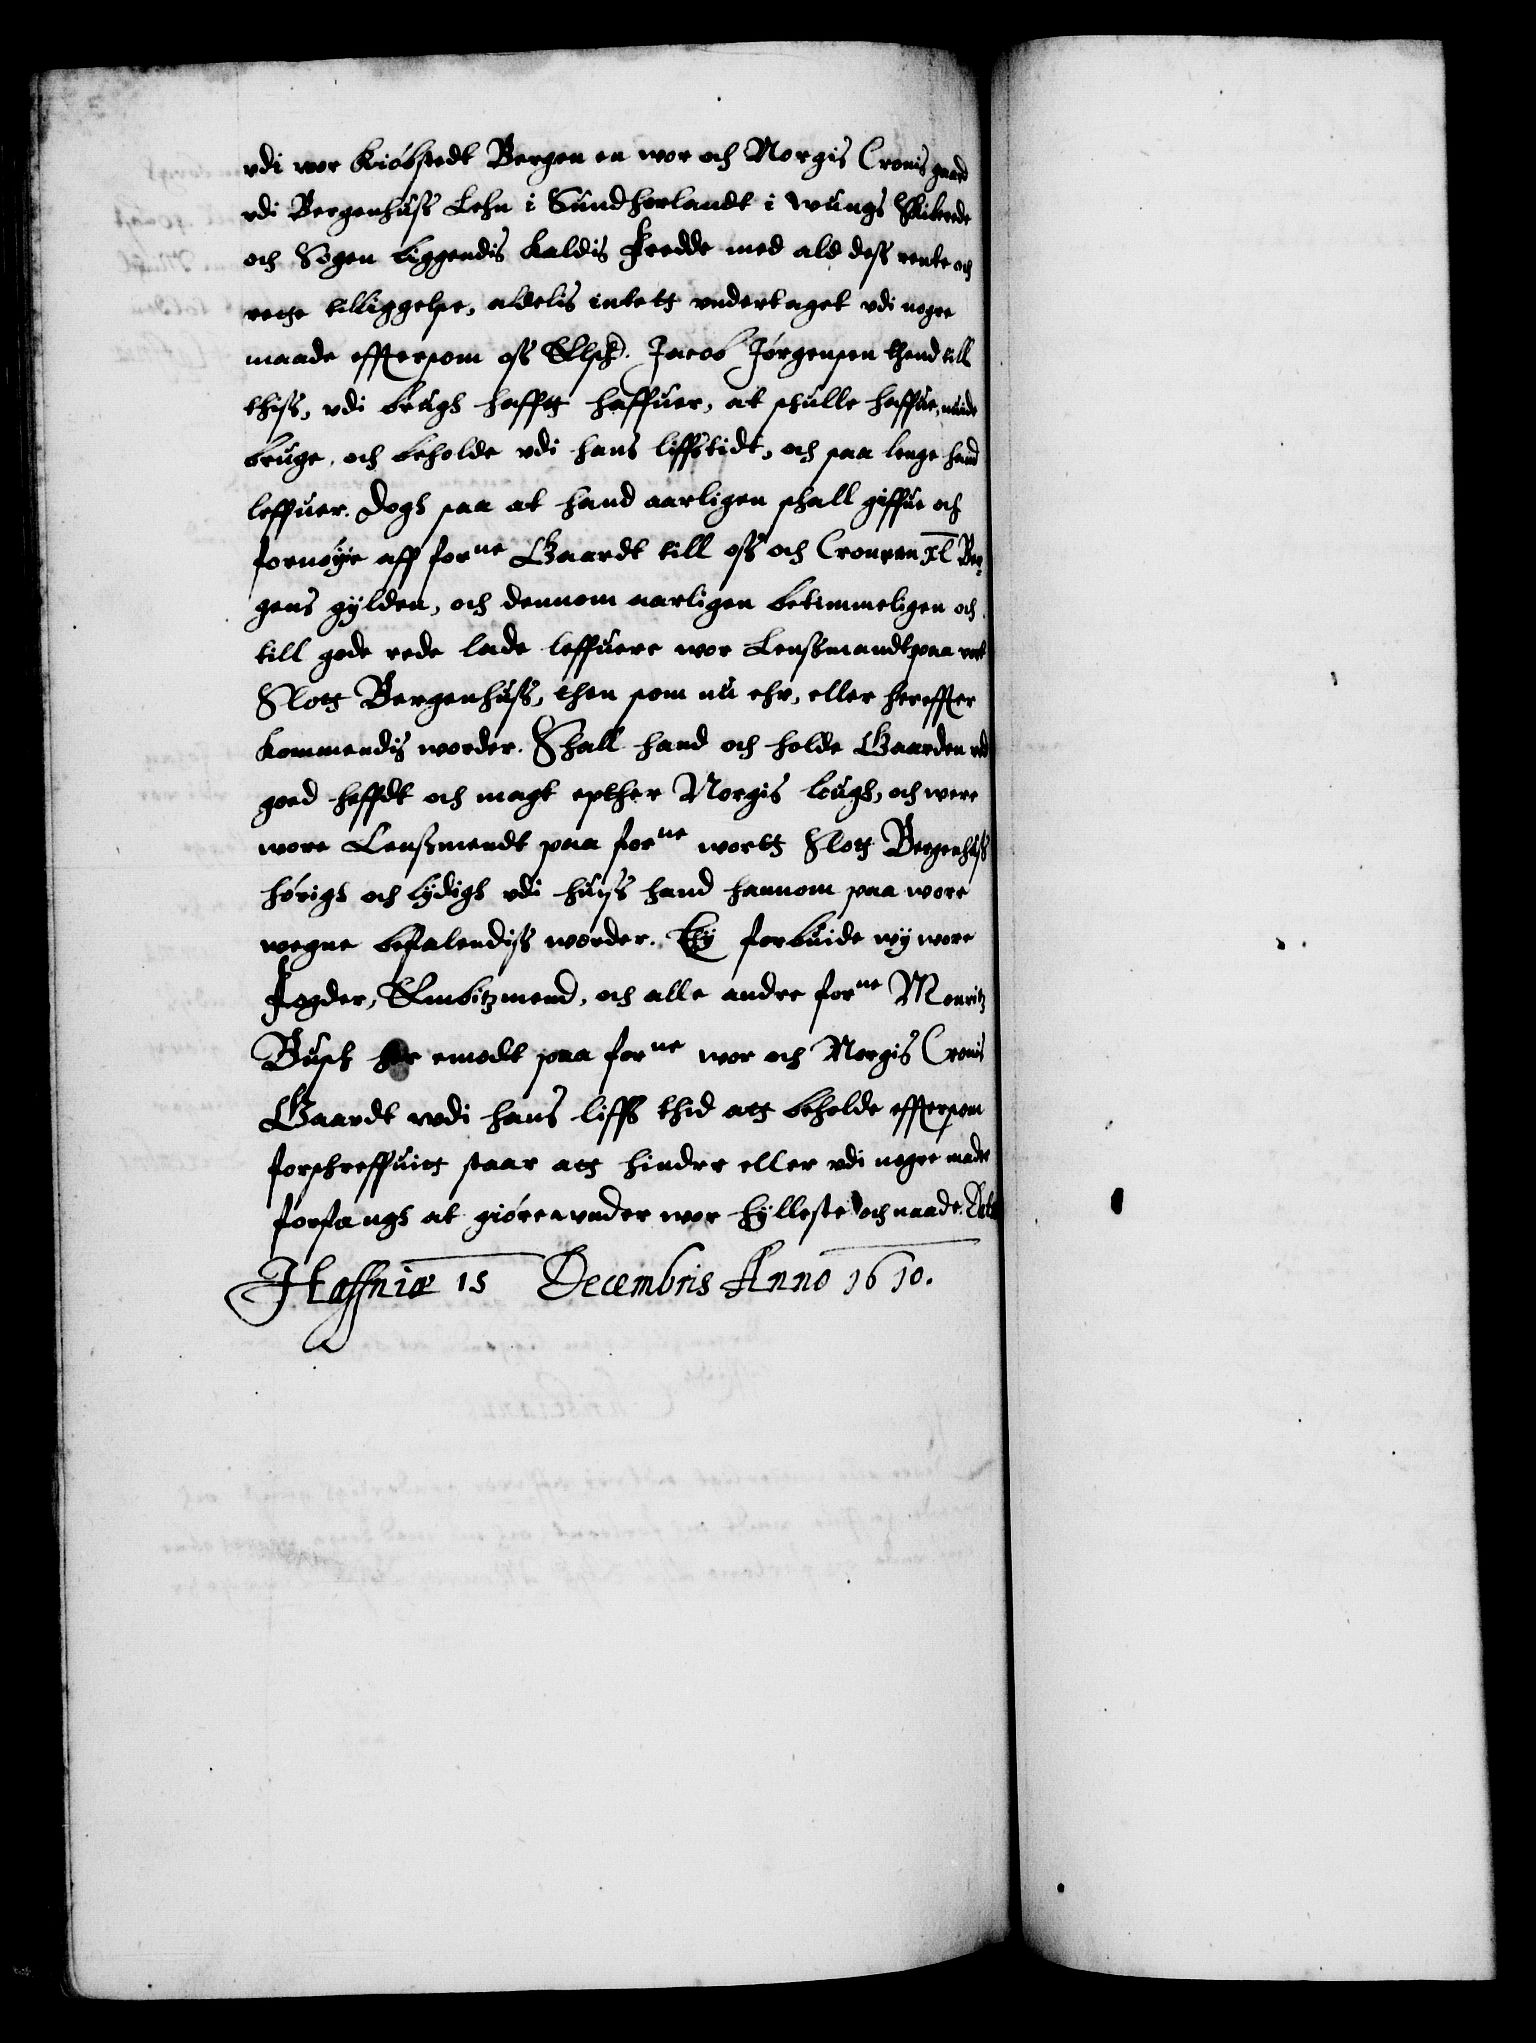 vdi wor Kiöbstedt Bergen en wor och Norgis Cronis gaard
vdi Bergenhuss Lehn i Sundhorlandt i wungs Skibrede
och Sogen liggendis kaldis Fredde med ald dess rente och
rette tilliggelse, aldelis intett vndertaget vdi nogre
maade efftersom oss Elsk. Jacob Jörgensen thend till
thiss, vdi brugh hafftt haffuer, at schulle haffue, niude
bruge, och beholde vdi hans liffstidt, och saa lenge hand
leffuer. Dogh saa at hand aarligen schall giffue och
fornöye aff forne Gaardt till oss och Cronnen xl Ber-
gens gylden, och dennom aarligen betimmeligen och
till gode rede lade leffuere wor Lenssmandt paa vort
Slott Bergenhuss, then som nu ehr, eller hereffter
kommendis worder. Schall hand och holde Gaarden ved
goed heffdt och magt epther Norgis lough, och were
wore Lenssmendt paa forne wortt Slott Bergenhuss
hörigh och lydigh vdi huiss hand hannom paa wore
wegne befalendiss worder. Thy forbuide wy wore
Fogder, Embitzmend, och alle andre forne Mouritz
Busch her emodt paa forne wor och Norgis Cronis
Gaardt wdi hans liffs thid att beholde efftersom
forschreffuitt staar att hindre eller vdi nogre made
forfangh at giöre vnder wor hylleste och naade. Dat.
Haffniæ 15 Decembris Anno 1610.